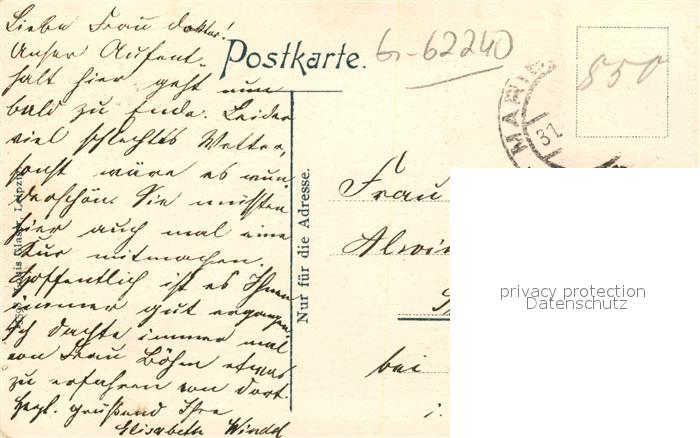 Liebe Frau Doktor!
Unser Aufent-
halt hier geht nun
bald zu Ende. Leider
viel schlechtes Wetter,
sonst wäre es wun-
derschön. Sie müssten
hier auch mal eine
Kur mitmachen.
Hoffentlich ist es Ihnen
immer gut ergangen
Ich dachte immer mal
von Frau Böhm etwas
zu erfahren von dort.
Herzl. grüßend Ihre
Elisabeth
Louis Glaser, Leipzig
Postkarte.
Gr-62240
850
MARIE
31
Nur für die Adresse.
Frau
Alwin
bei
i.
privacy protection
Datenschutz